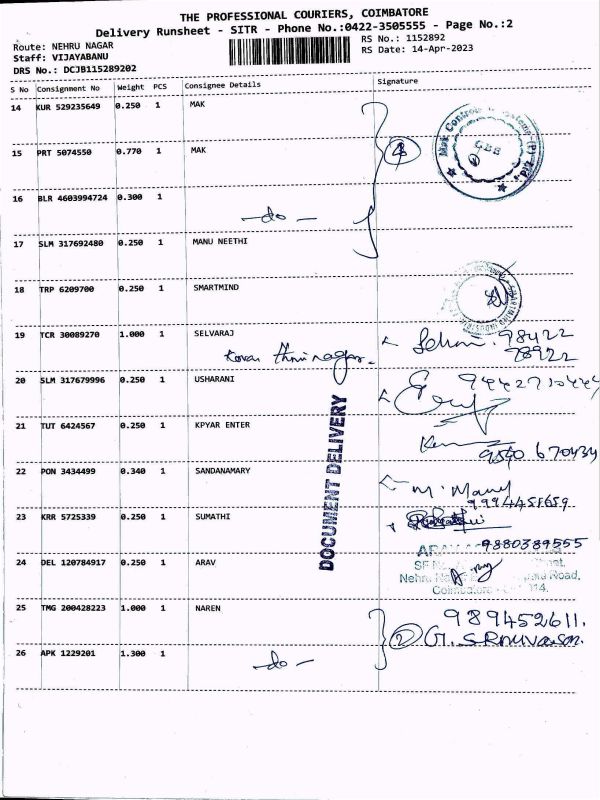 THE PROFESSIONAL COURIERS, COIMBATORE
Delivery Runsheet - SITR - Phone No.:0422-3505555 - Page No.:2
Route: NEHRU NAGAR
RS No.: 1152892
Staff: VIJAYABANU
RS Date: 14-Apr-2023
DRS No.: DCJB115289202
S No Consignment No Weight PCS Consignee Details Signature
14 KUR 529235649 0.250 1 MAK
15 PRT 5074550 0.770 1 MAK
4
16 BLR 4603994724 0.300 1
-do-
17 SLM 317692480 0.250 1 MANU NEETHI
18 TRP 6209700 0.250 1 SMARTMIND
19 TCR 30089270 1.000 1 SELVARAJ
98422
78922
20 SLM 317679996 0.250 1 USHARANI
21 TUT 6424567 0.250 1 KPYAR ENTER
9540 670434
22 PON 3434499 0.340 1 SANDANAMARY
M. Mary
9994451659
23 KRR 5725339 0.250 1 SUMATHI
9880389555
24 DEL 120784917 0.250 1 ARAV
Road,
25 TMG 200428223 1.000 1 NAREN
989452611.
2 G. SRnuvasan.
26 APK 1229201 1.300 1
-do-
DOCUMENT DELIVERY